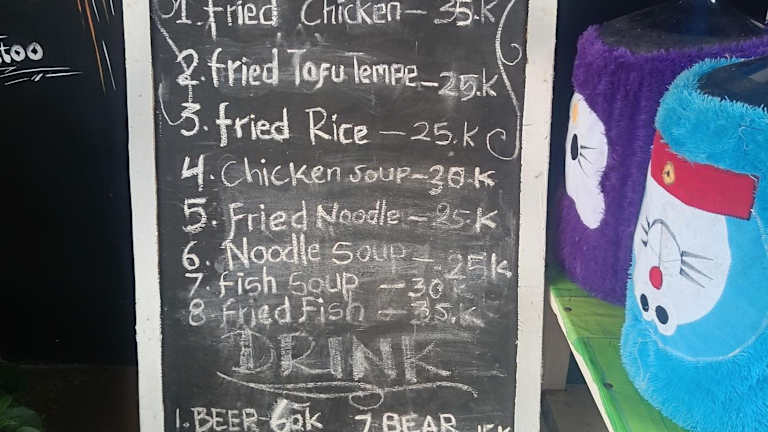 too
1. fried Chicken - 35.K
2. fried Tofu Tempe - 25.K
3. fried Rice - 25.K
4. Chicken soup - 30.K
5. Fried Noodle - 25K
6. Noodle Soup - 25K
7. fish Soup - 30K
8 fried Fish - 35.K
DRINK
1. BEER - 60K 7. BEAR 15K